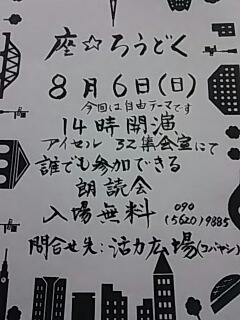 座☆ろうどく
8月6日(日)
今回は自由テーマです
14時開演
アイセル 32集会室にて
誰でも参加できる
朗読会
入場無料 090
(5620)9885
問合せ先:活力広場(コバヤシ)